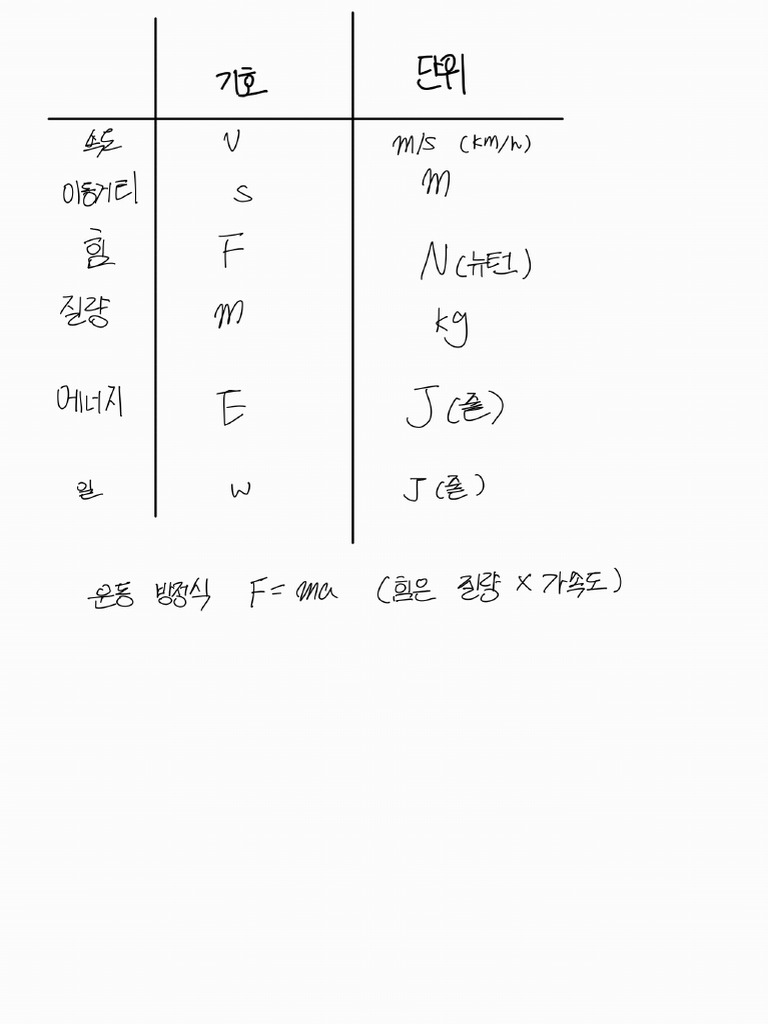 기호 단위
속도 v m/s (km/h)
이동거리 s m
힘 F N (뉴턴)
질량 m kg
에너지 E J (줄)
일 w J (줄)
운동 방정식 F = ma (힘은 질량 × 가속도)